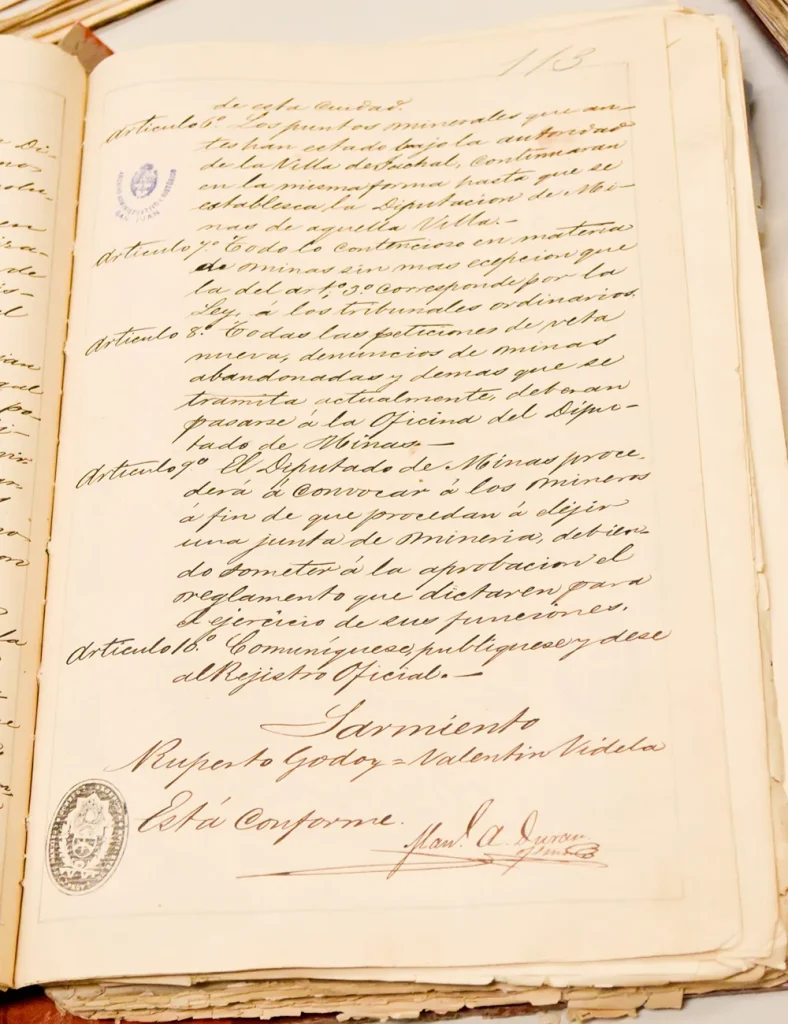 113
de esta Ciudad.
Articulo 6º. Los puntos minerales que an-
tes han estado bajo la autoridad
de la Villa de Jachal, Continuaran
en la misma forma hasta que se
establesca, la Diputacion de Mi-
nas de aquella Villa.-
Articulo 7º. Todo lo contencioso en materia
de minas sin mas ecepcion que
la del artº. 3º. corresponde por la
Ley, á los tribunales ordinarios.
Articulo 8º. Todas las peticiones de veta
nueva, denuncios de minas
abandonadas y demas que se
tramita actualmente, deberan
pasarse á la Oficina del Dipu-
tado de Minas.-
Articulo 9º El Diputado de Minas proce-
derá á Convocar á los mineros
á fin de que procedan á elejir
una junta de mineria, debien-
do someter á la aprobacion el
reglamento que dictaren para
el ejercicio de sus funciones.
Articulo 10º. Comuníquese, publiquese y dese
al Rejistro Oficial.-
Sarmiento
Ruperto Godoy = Valentin Videla
Está Conforme.
Manl. A. Duran
SAN JUAN